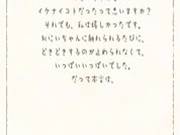 イケナイコトだったって思いますか?
それでも、私は嬉しかったです。
おにいちゃんに触れられるたびに、
どきどきするのが止められなくて、
いっぱいいっぱいでした。
だって本当は、